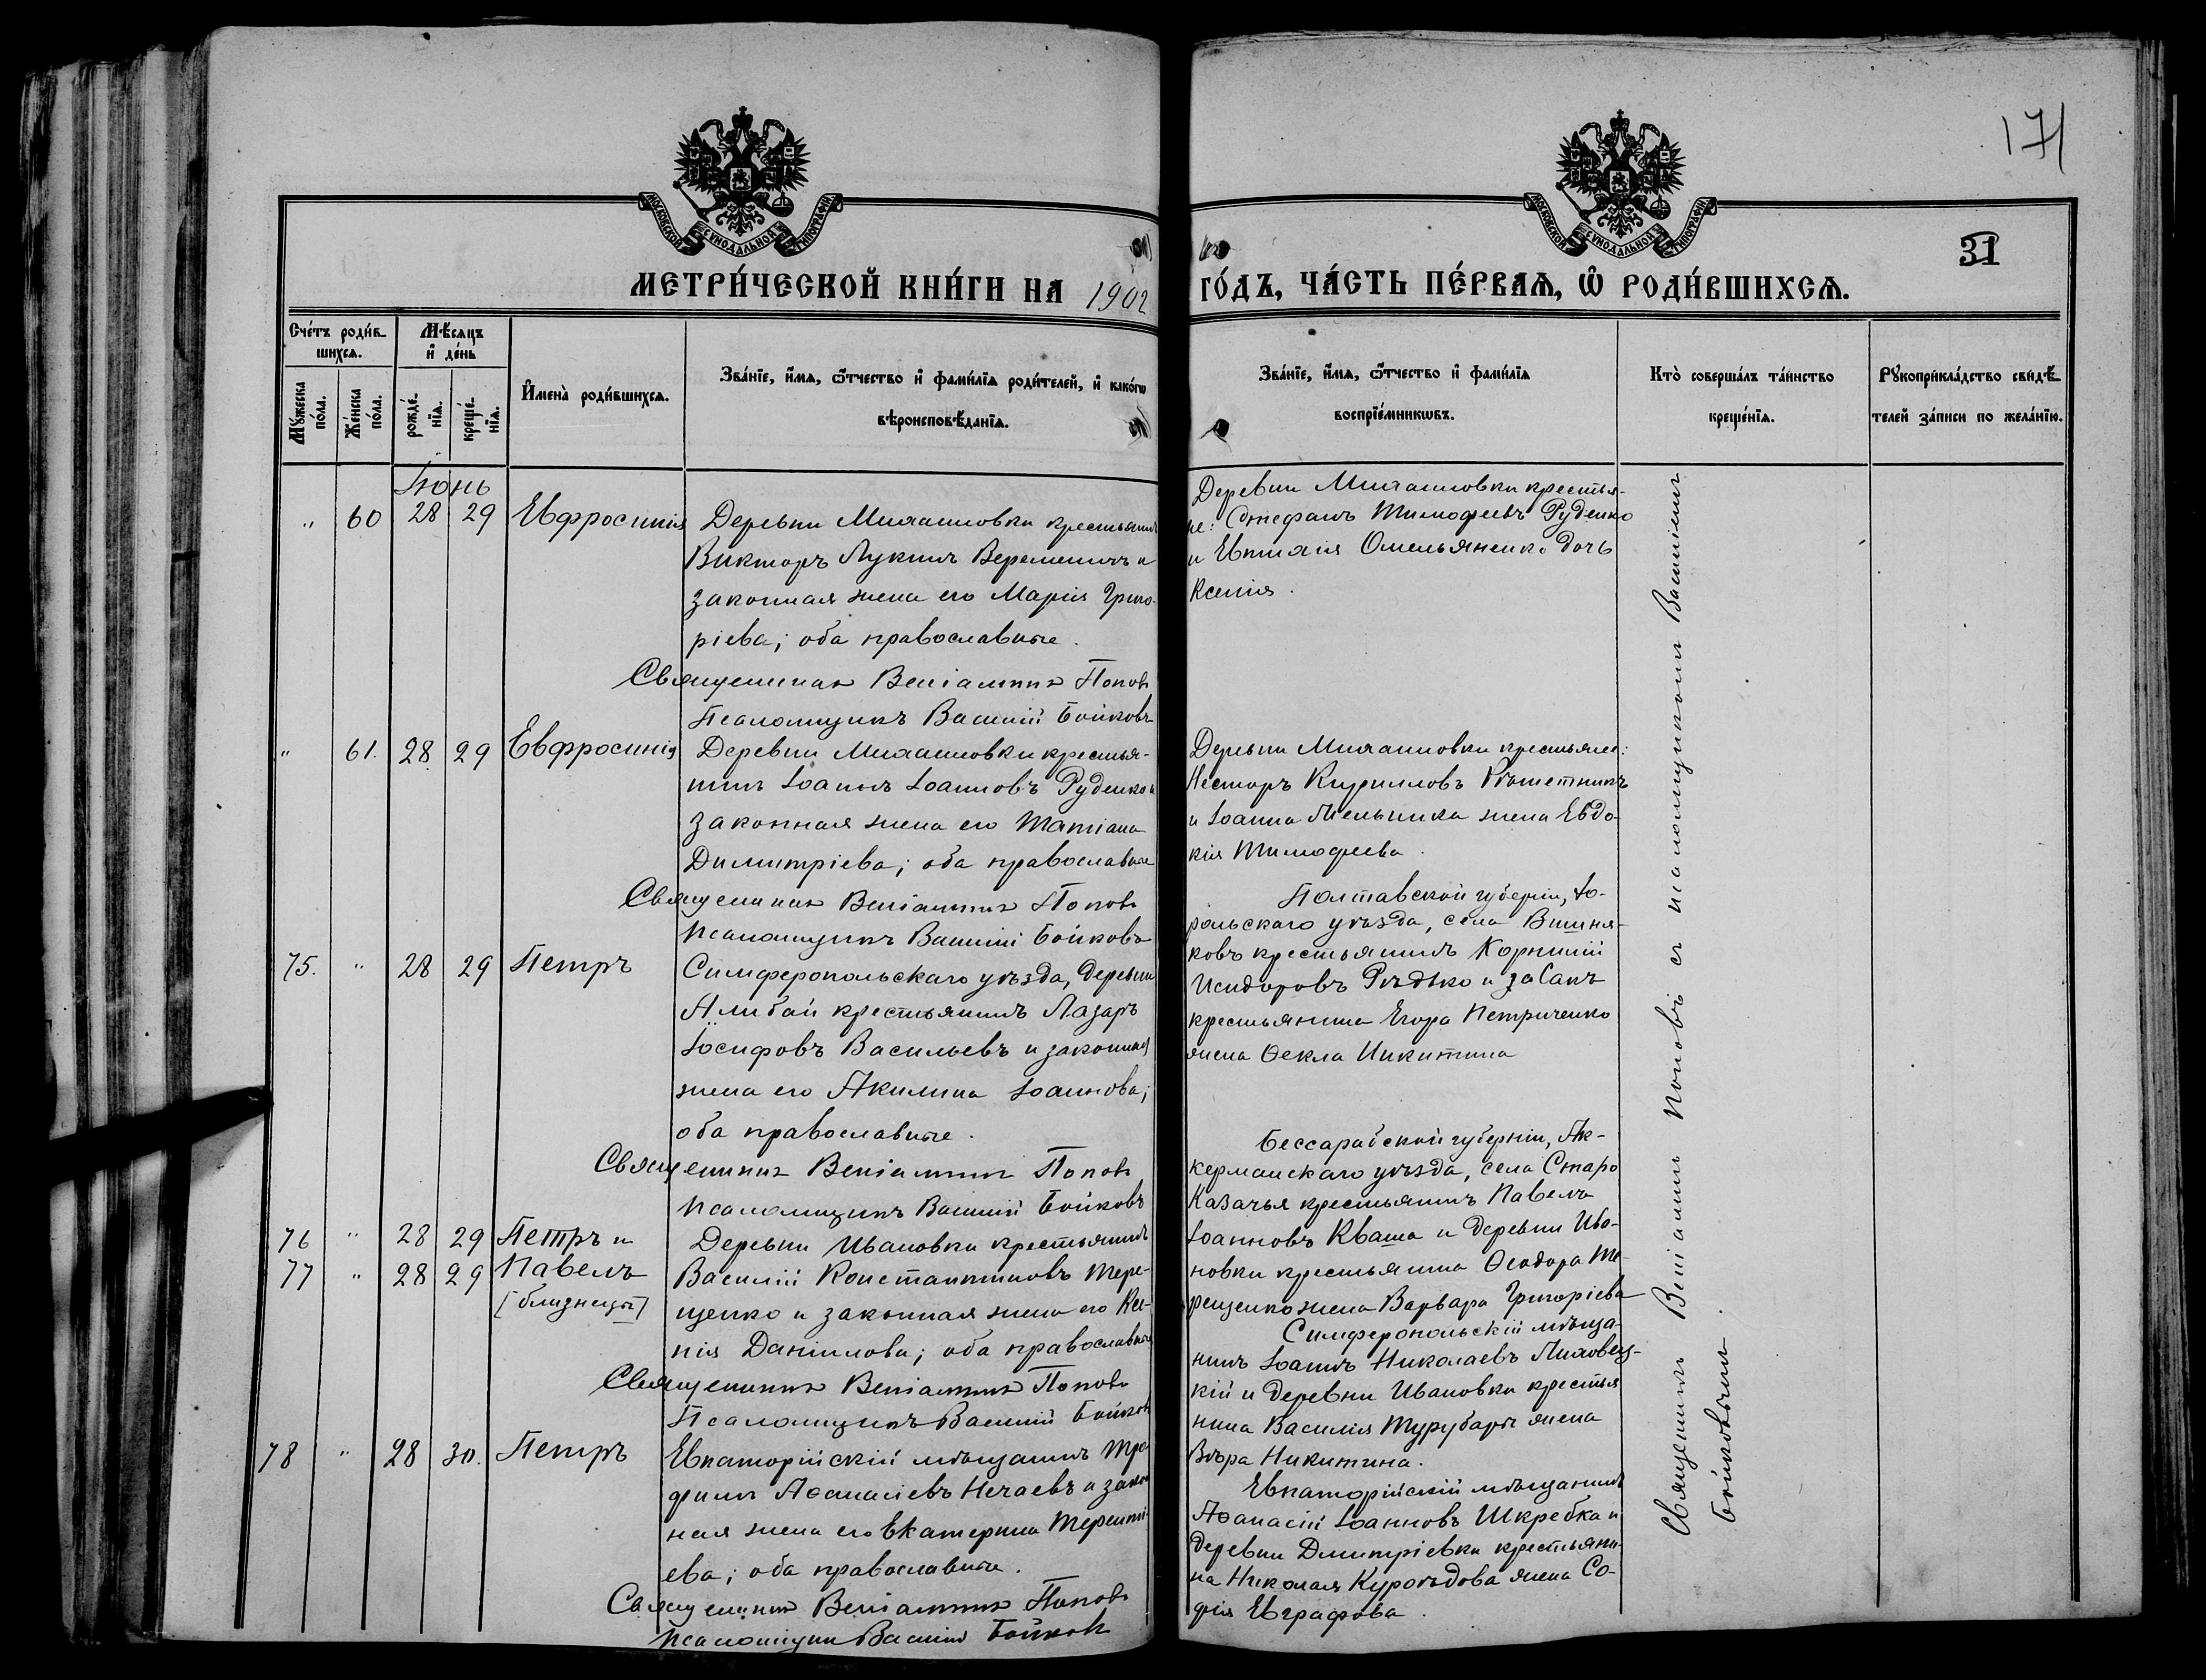 171
31
МОСКОВСКОЙ СѴНОДАЛЬНОЙ ТИПОГРАФІИ
МОСКОВСКОЙ СѴНОДАЛЬНОЙ ТИПОГРАФІИ
МЕТРИ́ЧЕСКОЙ КНИ́ГИ НА 1902
ГО́ДЪ, ЧА́СТЬ ПЕ́РВАѦ, Ѽ РОДИ́ВШИХСѦ.
Сче́тъ роди́в-
шихсѧ.
Мꙋжеска по́ла.
Же́нска по́ла.
Мѣ́сѧцъ
и҆ де́нь
рожде́-
нїѧ.
креще́-
нїѧ.
И҆мена̀ роди́вшихсѧ.
Зва́нїе, и҆́мѧ, ѻ҆́тчество и҆ фами́лїѧ роди́телей, и҆ како́гѡ
вѣроисповѣ́данїѧ.
Зва́нїе, и҆́мѧ, ѻ҆́тчество и҆ фами́лїѧ
воспрїе́мникѡвъ.
Кто̀ соверша́лъ та́инство
креще́нїѧ.
Рꙋкоприкла́дство свидѣ́-
телей за́писи по жела́нїю.
Іюнь
" 60 28 29 Евфросинія Деревни Михайловки крестьянинъ
Викторъ Лукинъ Веремеичъ и
законная жена его Марія Григо-
ріева; оба православные.
Священникъ Веніаминъ Поповъ
Псаломщикъ Василій Бойковъ
Деревни Михайловки крестья-
не: Стефанъ Тимофеевъ Руденко
и Омельяненко дочь
Ксенія.
" 61. 28 29 Евфросинія Деревни Михайловки крестья-
нинъ Іоаннъ Іоанновъ Руденко и
законная жена его Татіана
Димитріева; оба православные
Священникъ Веніаминъ Поповъ
Псаломщикъ Василій Бойковъ
Деревни Михайловки крестьяне:
Несторъ Кирилловъ Рѣшетникъ
и Іоанна Мельника жена Евдо-
кія Тимофеева.
75. " 28 29 Петръ Симферопольскаго уѣзда, деревни
Алибай крестьянинъ Лазарь
Іосифовъ Васильевъ и законная
жена его Акилина Іоаннова;
оба православные.
Священникъ Веніаминъ Поповъ
Псаломщикъ Василій Бойковъ
Полтавской губерніи, Хо-
рольскаго уѣзда, села Вишня-
ковъ крестьянинъ Корнилій
Исидоровъ Рѣдько и
крестьянина Егора Петриченко
жена Ѳекла Никитина
76 " 28 29 Петръ и Деревни Ивановки крестьянинъ
77 " 28 29 Павелъ Василій Константиновъ Тере-
[близнецы] щенко и законная жена его Ксе-
нія Даніилова; оба православные
Священникъ Веніаминъ Поповъ
Псаломщикъ Василій Бойковъ
Бессарабской губерніи, Ак-
керманскаго уѣзда, села Старо
Казачья крестьянинъ Павелъ
Іоанновъ Кваша и деревни Ива-
новки крестьянина Ѳеодора Те-
рещенко жена Варвара Григоріева
Симферопольскій мѣща-
нинъ Іоаннъ Николаевъ Липовец-
кій и деревни Ивановки крестья
нина Василія Турубары жена
Вѣра Никитина.
78 " 28 30. Петръ Евпаторійскій мѣщанинъ Тро-
фимъ Аѳанасіевъ Нечаевъ и закон
ная жена его Екатерина Теренті-
ева; оба православные.
Священникъ Веніаминъ Поповъ
Псаломщикъ Василій Бойковъ
Евпаторійскій мѣщанинъ
Аѳанасій Іоанновъ Шкребка и
деревни Дмитріевки крестьяни-
на Николая Куроѣдова жена Со-
фія Евграфова.
Священникъ Веніаминъ Поповъ съ псаломщикомъ Василіемъ
Бойковымъ.